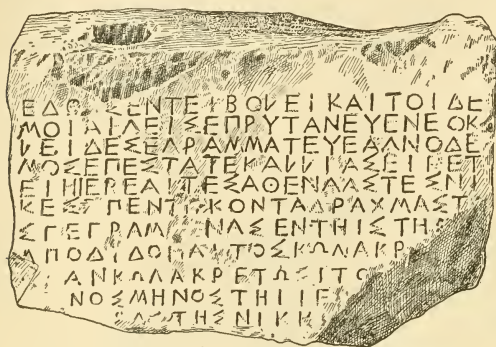 ΕΔΟΧΣΕΝΤΕΙΒΟΛΕΙΚΑΙΤΟΙΔΕ
ΜΟΙΑΙΓΕΙΣΕΠΡΥΤΑΝΕΥΕΝΕΟΚ
ΛΕΙΔΕΣΕΓΡΑΜΜΑΤΕΥΕΑΓΝΟΔΕ
ΜΟΣΕΠΕΣΤΑΤΕΚΑΛΛΙΑΣΕΙΠΕΤ
ΕΙΗΙΕΡΕΑΙΤΕΣΑΘΕΝΑΑΣΤΕΣΝΙ
ΚΕΣ ΠΕΝΤΕΚΟΝΤΑΔΡΑΧΜΑΣΤ
ΣΓΕΓΡΑΜ ΝΑΣΕΝΤΗΙΣΤΗ
ΑΠΟΔΙΔΟΝΑΙΤΟΣΚΩΛΑΚΡ
ΑΝΚΩΛΑΚΡΕΤΩΣΙΤΟ
ΝΟΣΜΗΝΟΣΤΗΙΙΕ
ΤΗΣΝΙΚΗ